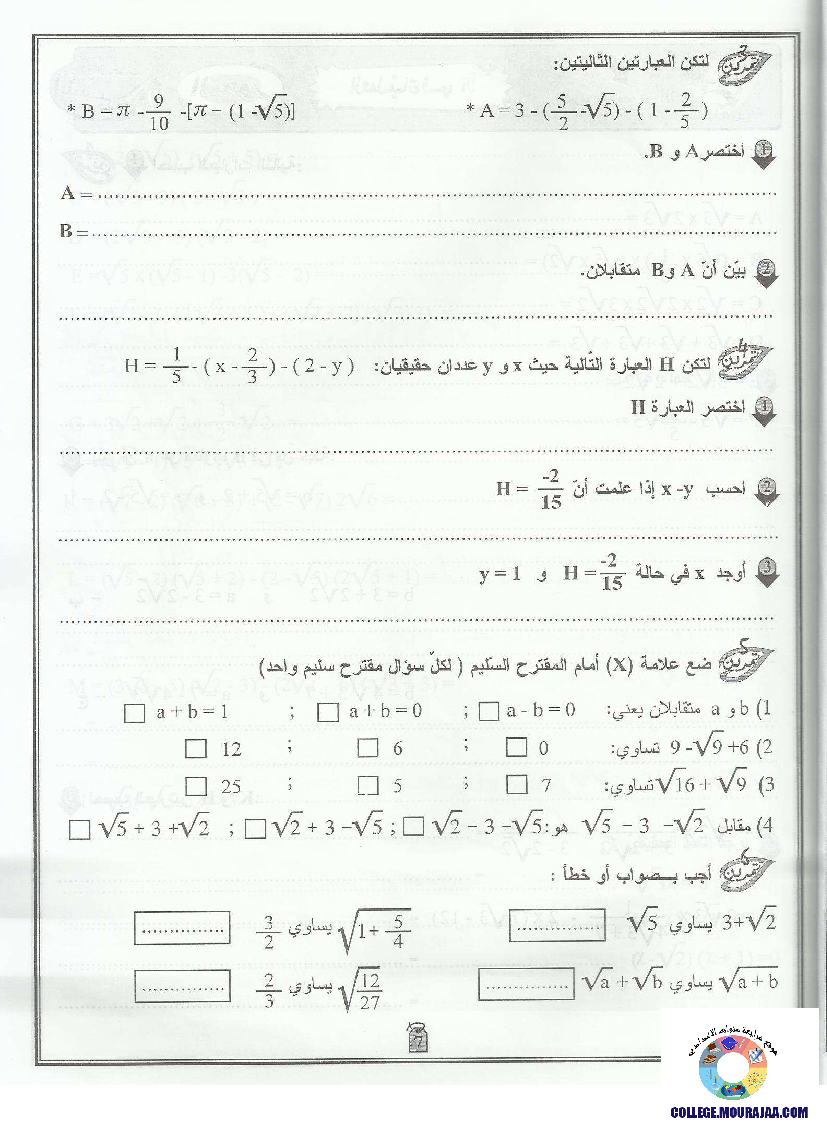 تمرين 3 لتكن العبارتين التاليتين:
* A = 3 - (5/2 - √5) - ( 1 - 2/5 ) * B = π - 9/10 - [π - (1 - √5)]
1 اختصر A و B.
A = ........................
B = ........................
2 بيّن أنّ A و B متقابلان.
........................
تمرين 4 لتكن H العبارة التّالية حيث x و y عددان حقيقيان: H = 1/5 - ( x - 2/3 ) - ( 2 - y )
1 اختصر العبارة H
........................
2 احسب x - y إذا علمت أنّ H = -2/15
........................
3 أوجد x في حالة H = -2/15 و y = 1
........................
تمرين 5 ضع علامة (X) أمام المقترح السّليم ( لكلّ سؤال مقترح سليم واحد)
1) b و a متقابلان يعني: a - b = 0 □ ; a + b = 0 □ ; a + b = 1 □
2) 9 - √9 + 6 تساوي: 0 □ ; 6 □ ; 12 □
3) √16 + √9 تساوي: 7 □ ; 5 □ ; 25 □
4) مقابل √5 - 3 - √2 هو: √2 - 3 - √5 □ ; √2 + 3 - √5 □ ; √5 + 3 + √2 □
تمرين 6 أجب بـصواب أو خطأ :
3+√2 يساوي √5 ............... √(1 + 5/4) يساوي 3/2 ...............
√(a + b) يساوي √a + √b ............... √(12/27) يساوي 2/3 ...............
7
موقع مراجعة
COLLEGE.MOURAJAA.COM